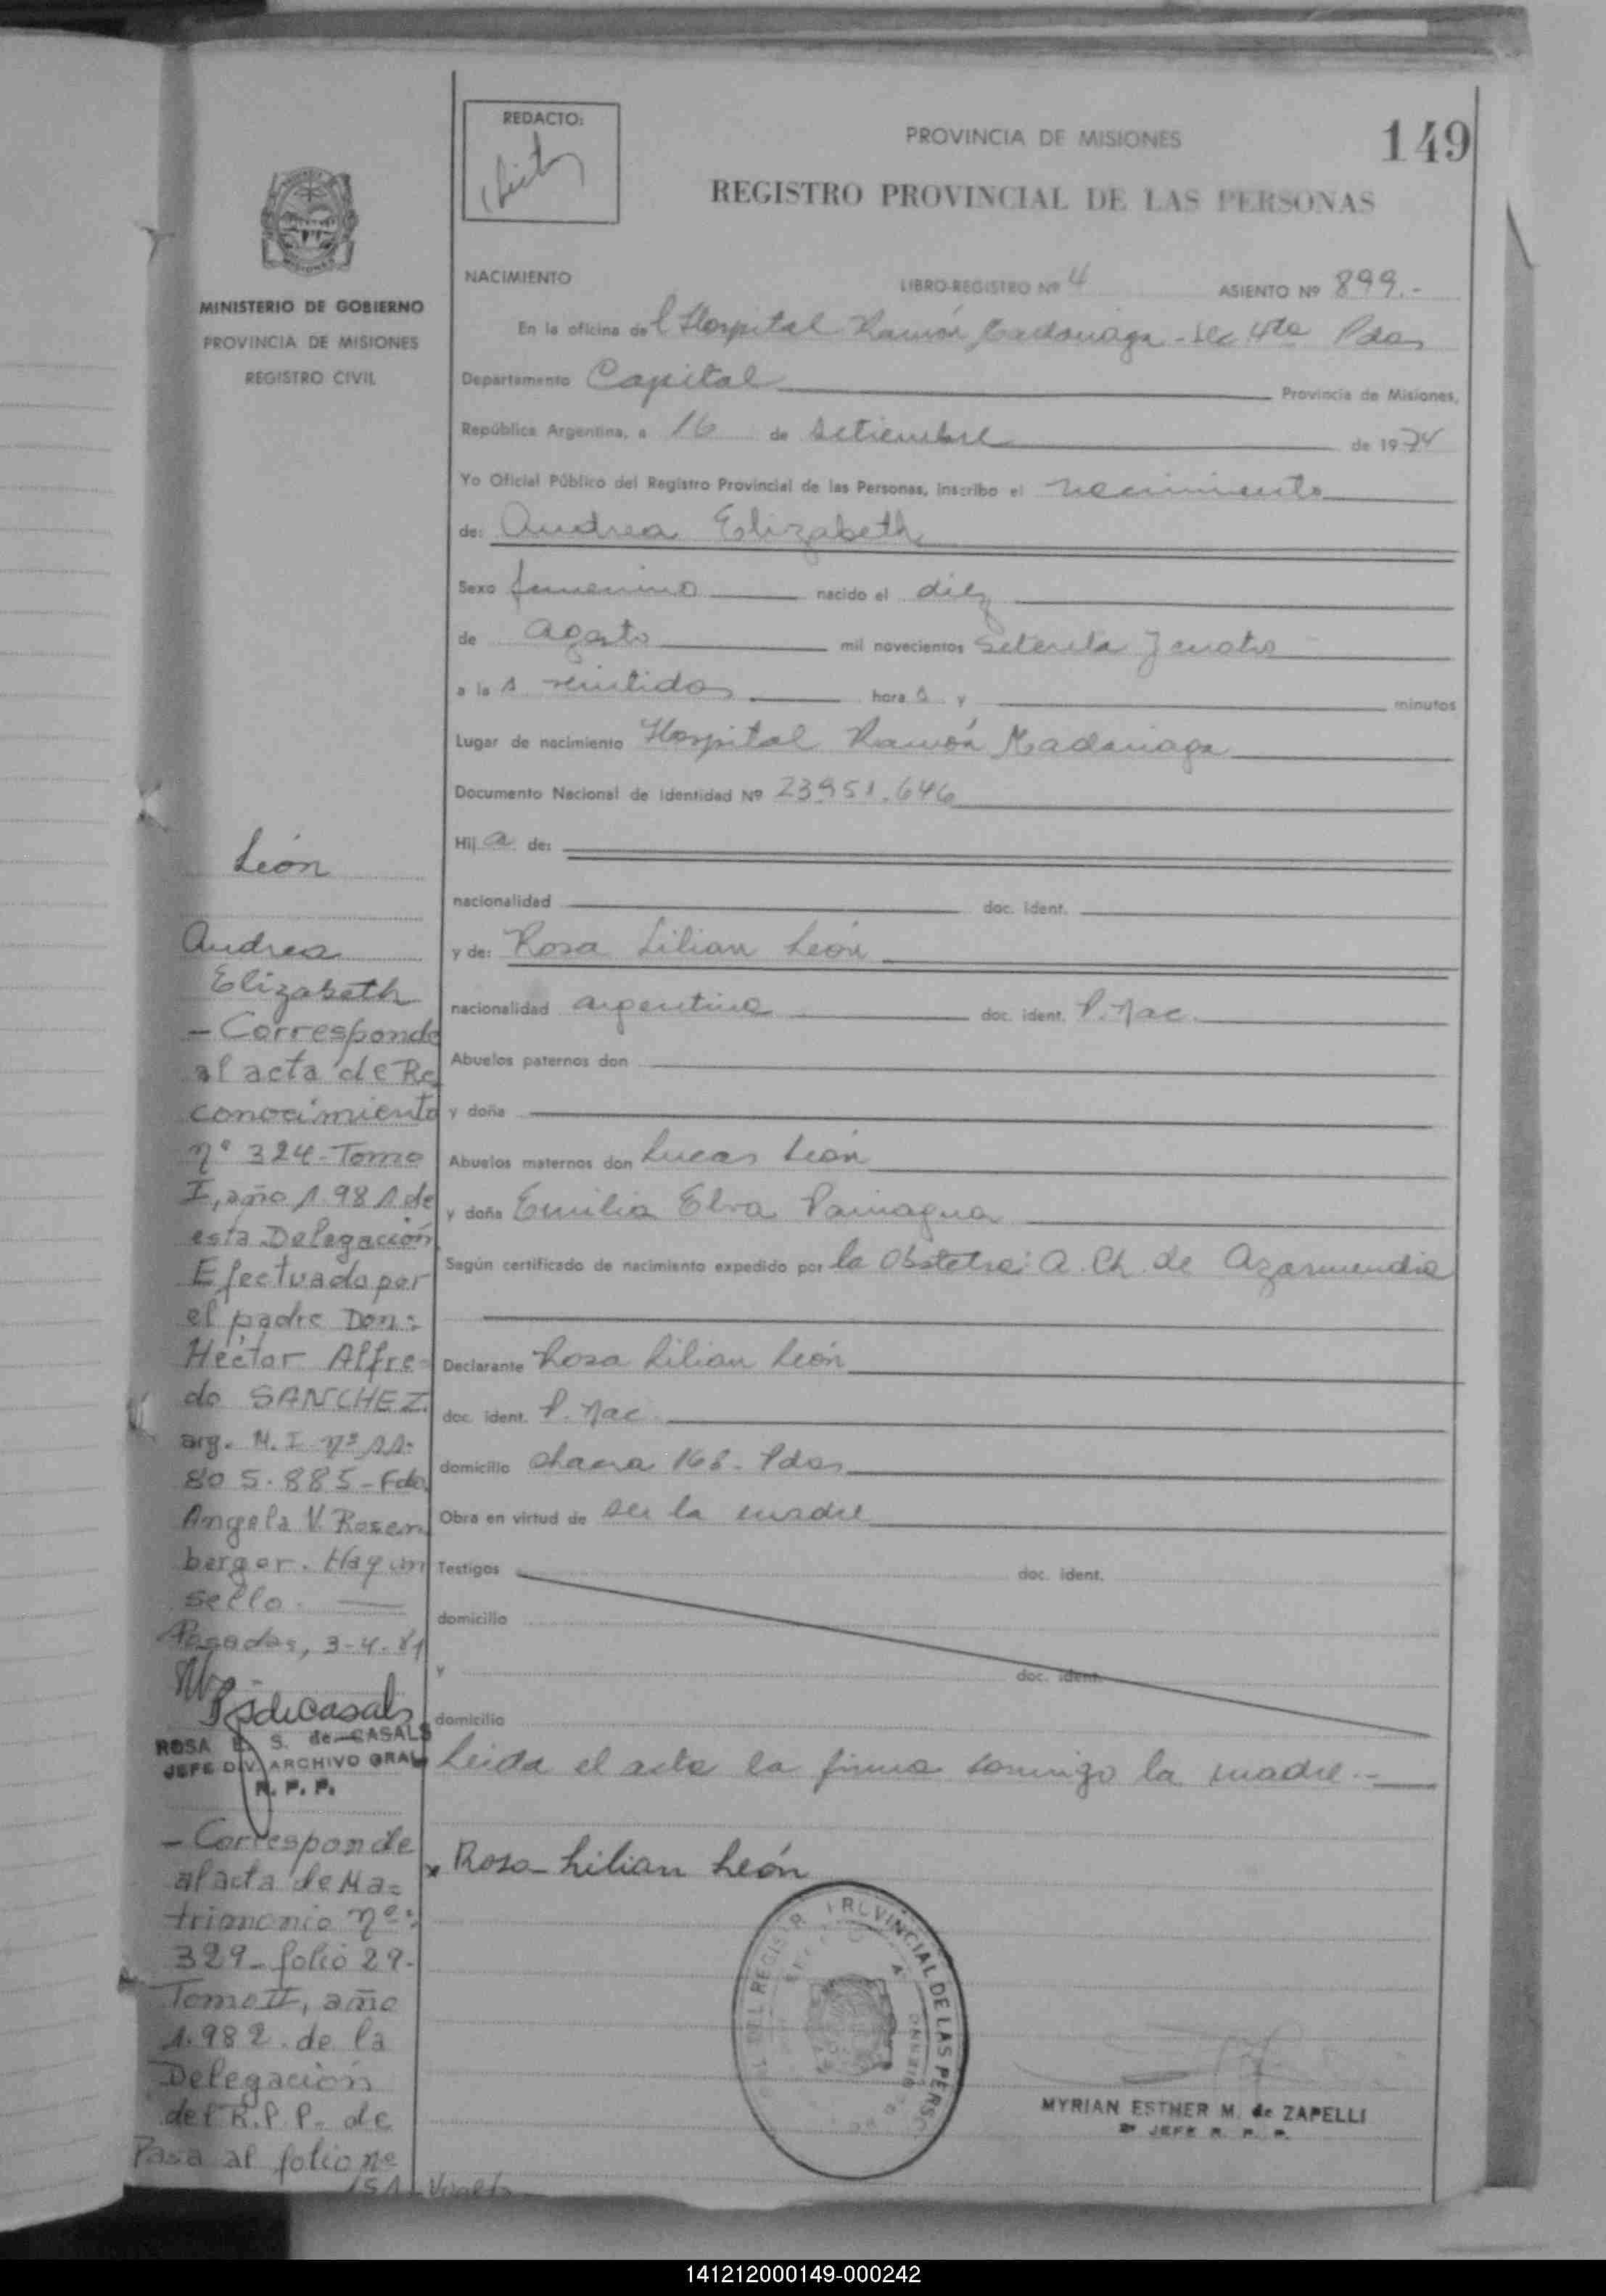 REDACTO:
PROVINCIA DE MISIONES
149
REGISTRO PROVINCIAL DE LAS PERSONAS
MINISTERIO DE GOBIERNO
PROVINCIA DE MISIONES
REGISTRO CIVIL
NACIMIENTO LIBRO-REGISTRO Nº 4 ASIENTO Nº 899.-
En la oficina del Hospital Ramón Madariaga - Sec 4ta Pdas
Departamento Capital Provincia de Misiones,
República Argentina, a 16 de Setiembre de 1974
Yo Oficial Público del Registro Provincial de las Personas, inscribo el nacimiento
de: Andrea Elizabeth
Sexo femenino nacido el diez
de agosto mil novecientos Setenta y cuatro
a las veintidos horas y minutos
Lugar de nacimiento Hospital Ramón Madariaga
Documento Nacional de Identidad Nº 23.951.646
Hija de:
nacionalidad doc. ident.
y de: Rosa Lilian León
nacionalidad argentina doc. ident. P. Nac.
Abuelos paternos don
y doña
Abuelos maternos don Lucas León
y doña Emilia Elva Paniagua
Según certificado de nacimiento expedido por la Obstetra: A. Ch. de Azarmendia
Declarante Rosa Lilian León
doc. ident. P. Nac.
domicilio chacra 168 - Pdas
Obra en virtud de ser la madre
Testigos doc. ident.
domicilio
y doc. ident.
domicilio
Leida el acta la firma conmigo la madre.-
Rosa Lilian León
MYRIAN ESTHER M. de ZAPELLI
2º JEFE R. P. P.
León
Andrea
Elizabeth
- Corresponde
al acta de Re
conocimiento
nº 324 - Tomo
I, año 1.981 de
esta Delegación
Efectuado por
el padre Don:
Héctor Alfre-
do SANCHEZ
arg. M. I nº 11.
805.885 - Fdo
Angela V. Rosen
berger. Hay un
sello.
Posadas, 3-4-81
ROSA E. S. de CASALS
JEFE DIV. ARCHIVO GRAL
R. P. P.
- Corresponde
al acta de Ma=
trimonio nº:
329 - folio 29-
Tomo II, año
1.982. de la
Delegación
del R.P.P. de
Pasa al folio nº
151 - Vuelto
141212000149-000242